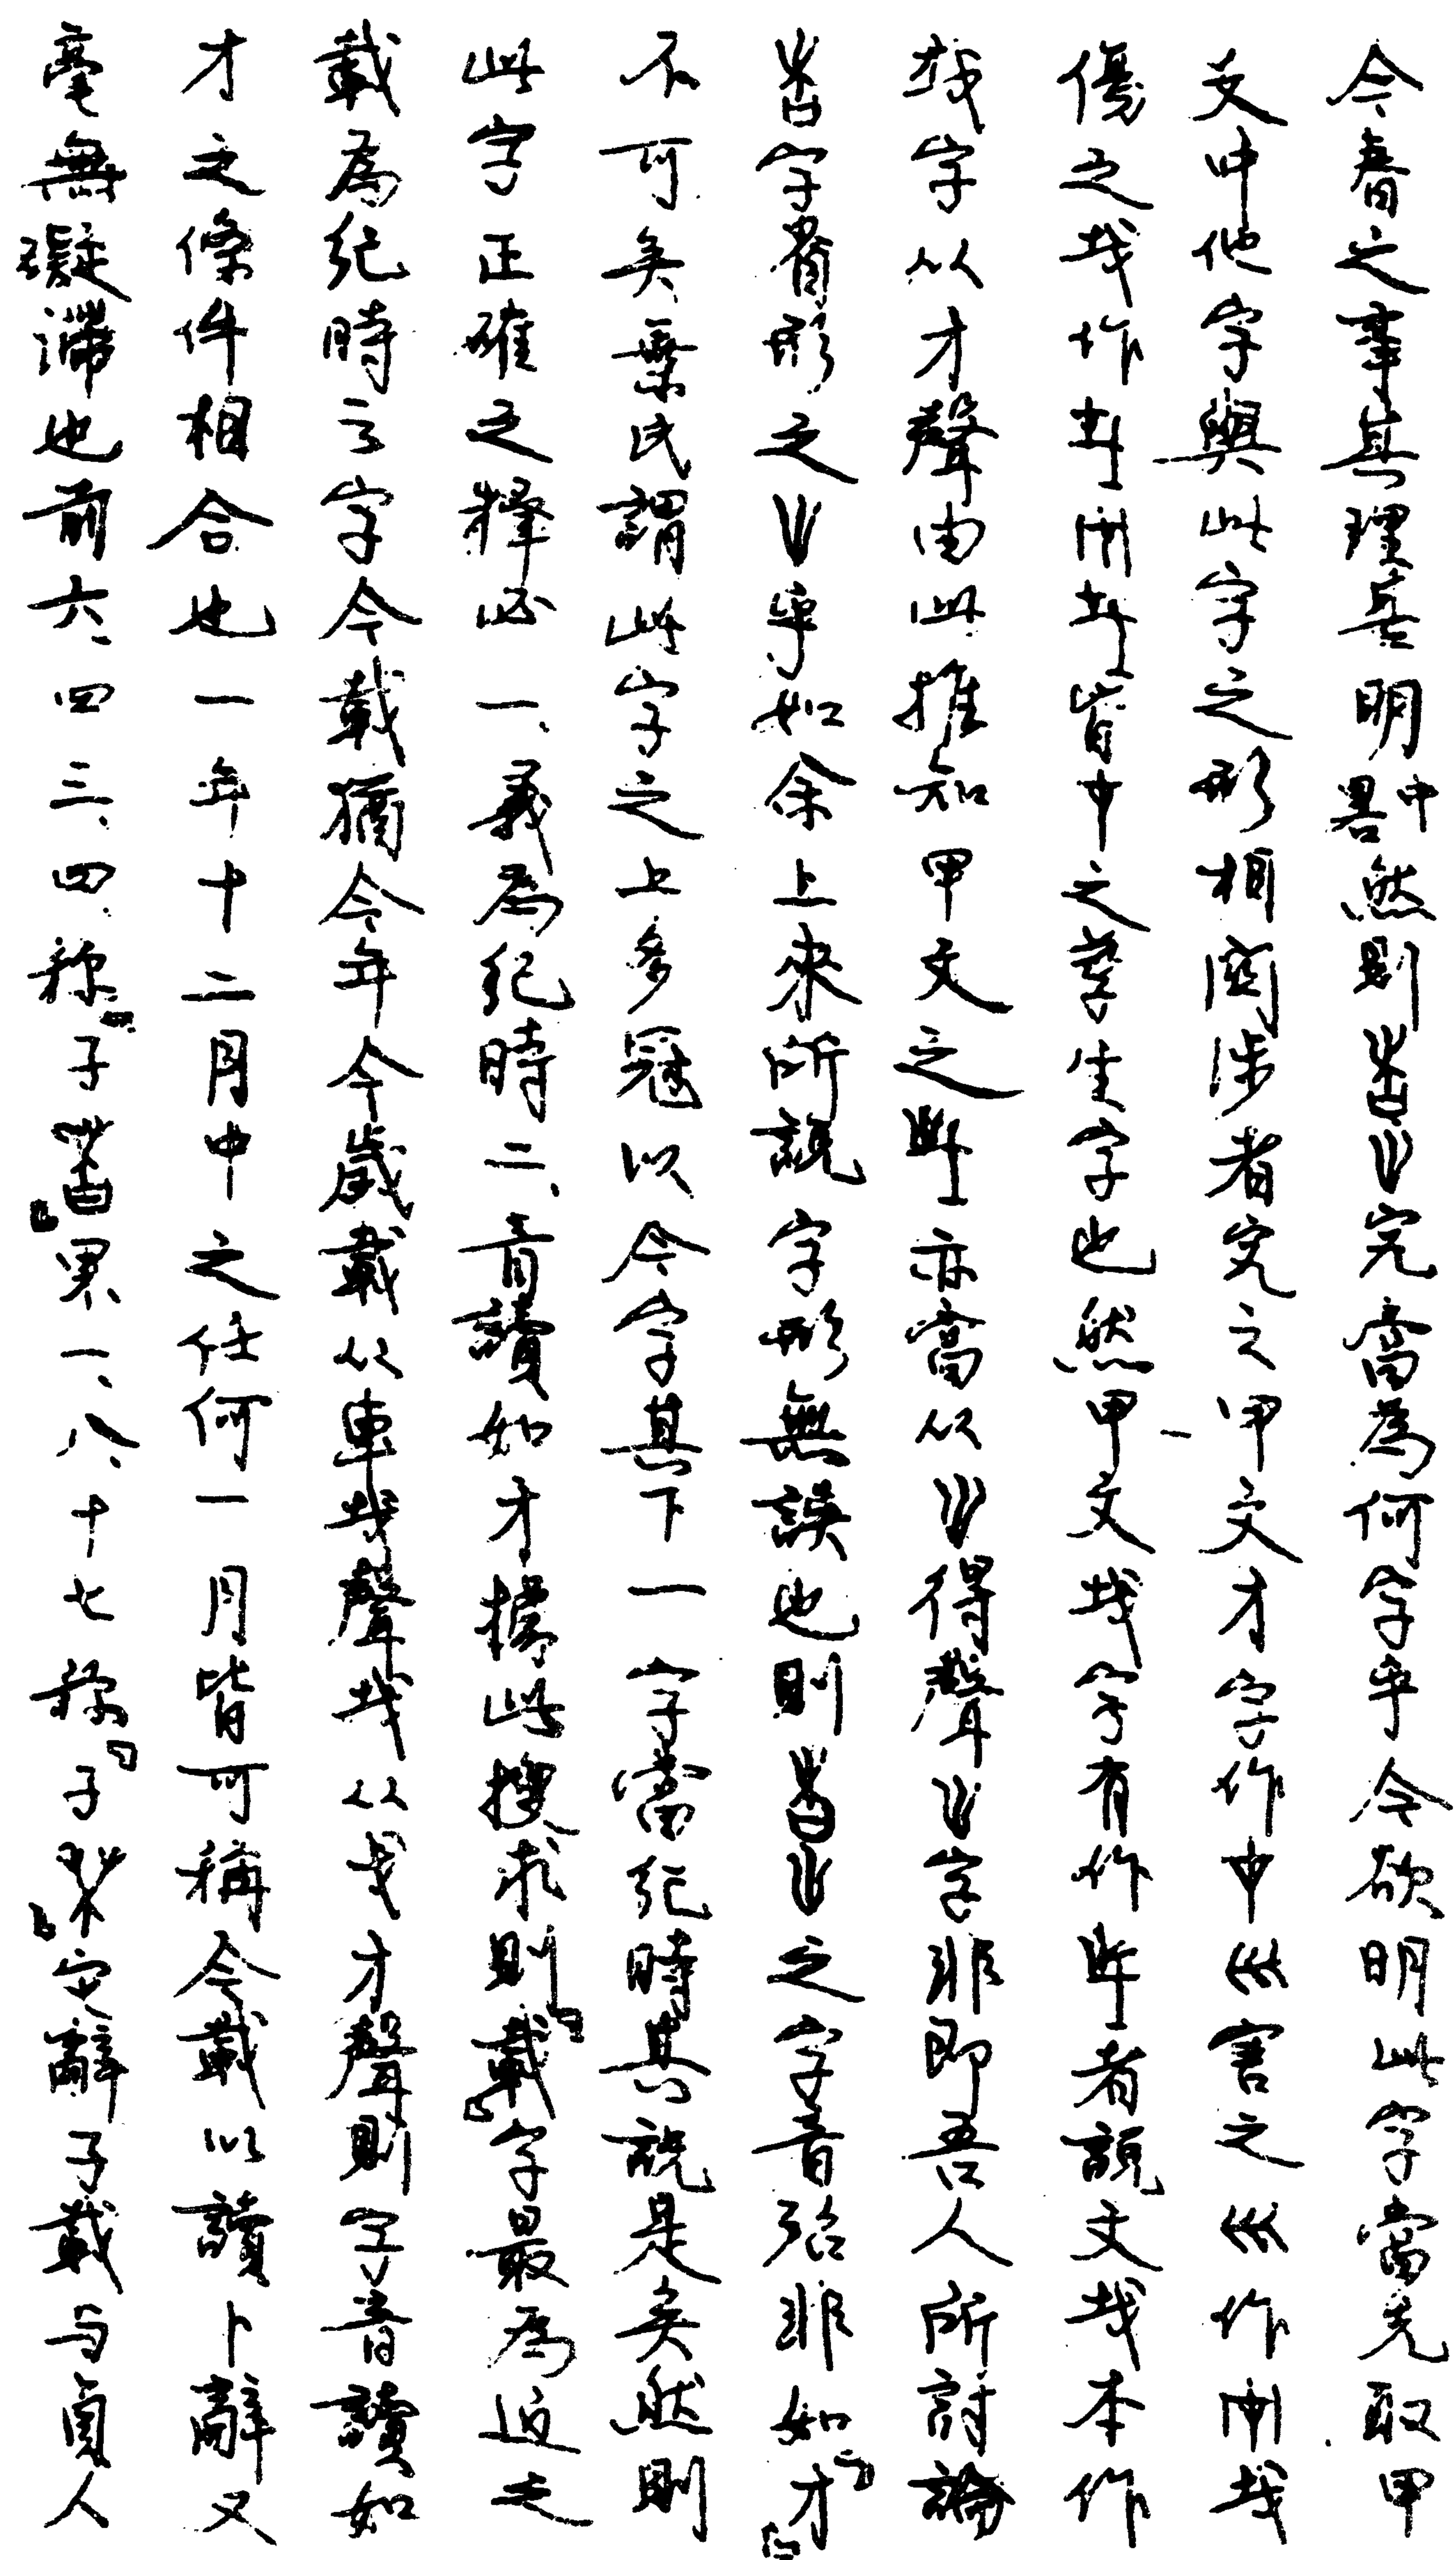 今春之事其理甚明中畧然則 究當為何字乎今欲明此字當先取甲
文中他字與此字之形相關涉者究之甲文才字作 巛害之巛作 𢦏
傷之𢦏作 皆 之孳生字也然甲文𢦏字有作 者說文𢦏本作
𢦏字从才聲由此推知甲文之 亦當从 得聲 字非即吾人所討論
 字省形之 乎如余上來所說字形無誤也則 之字音殆非如「才」
不可矣葉氏謂此字之上多冠以今字其下一字當紀時其說是矣然則
此字正確之釋必一、義為紀時二、音讀如才據此搜求則「載」字最為近之
載為紀時之字今載猶今年今歲載从車𢦏聲𢦏从戈才聲則字音讀如
才之條件相合也一年十二月中之任何一月皆可稱今載以讀卜辭又
毫無礙滯也前六、四三、四稱「子 」 一、八、十七稱「子 」 辭子載与貞人